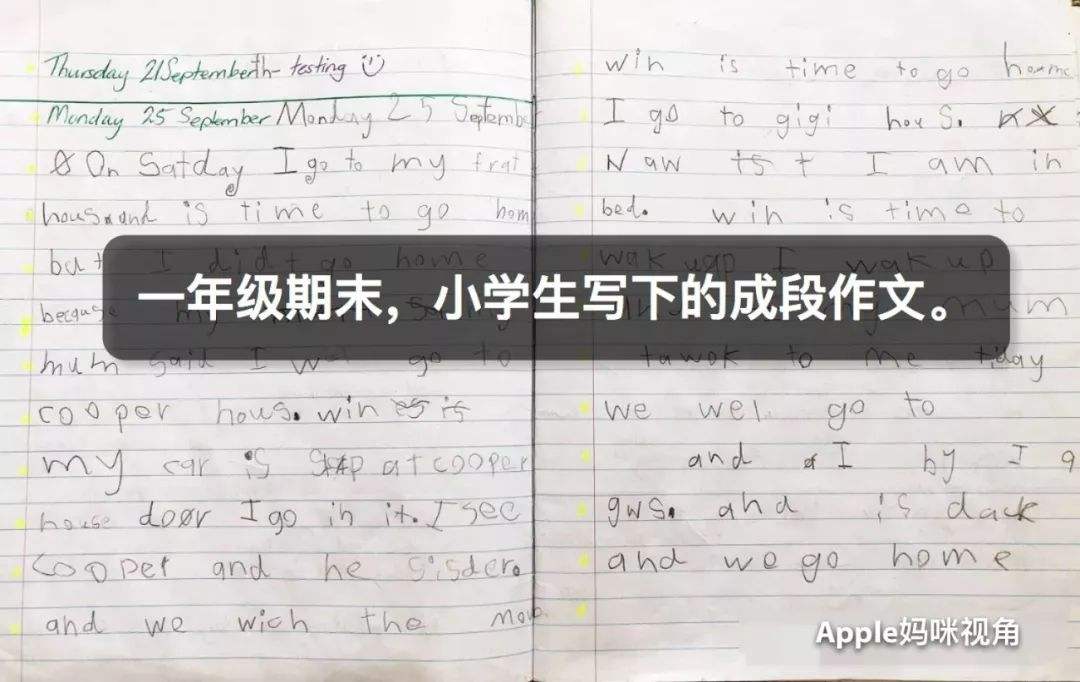 Thursday 21 September th- testing
Monday 25 September Monday 25 September
On Satday I go to my frat
hous. and is time to go hom
but I did't go home
becquse my
mum said I wel go to
cooper hous. win is is
my car is stap at cooper
house door I go in it. I see
cooper and he sisder.
and we wich the mov
win is time to go home
I go to gigi hous.
Naw I am in
bed. win is time to
wak uap I wak up
mum
tawok to me tiday
we wel go to
and I by I a
gws. and is dack
and we go home
一年级期末，小学生写下的成段作文。
Apple妈咪视角